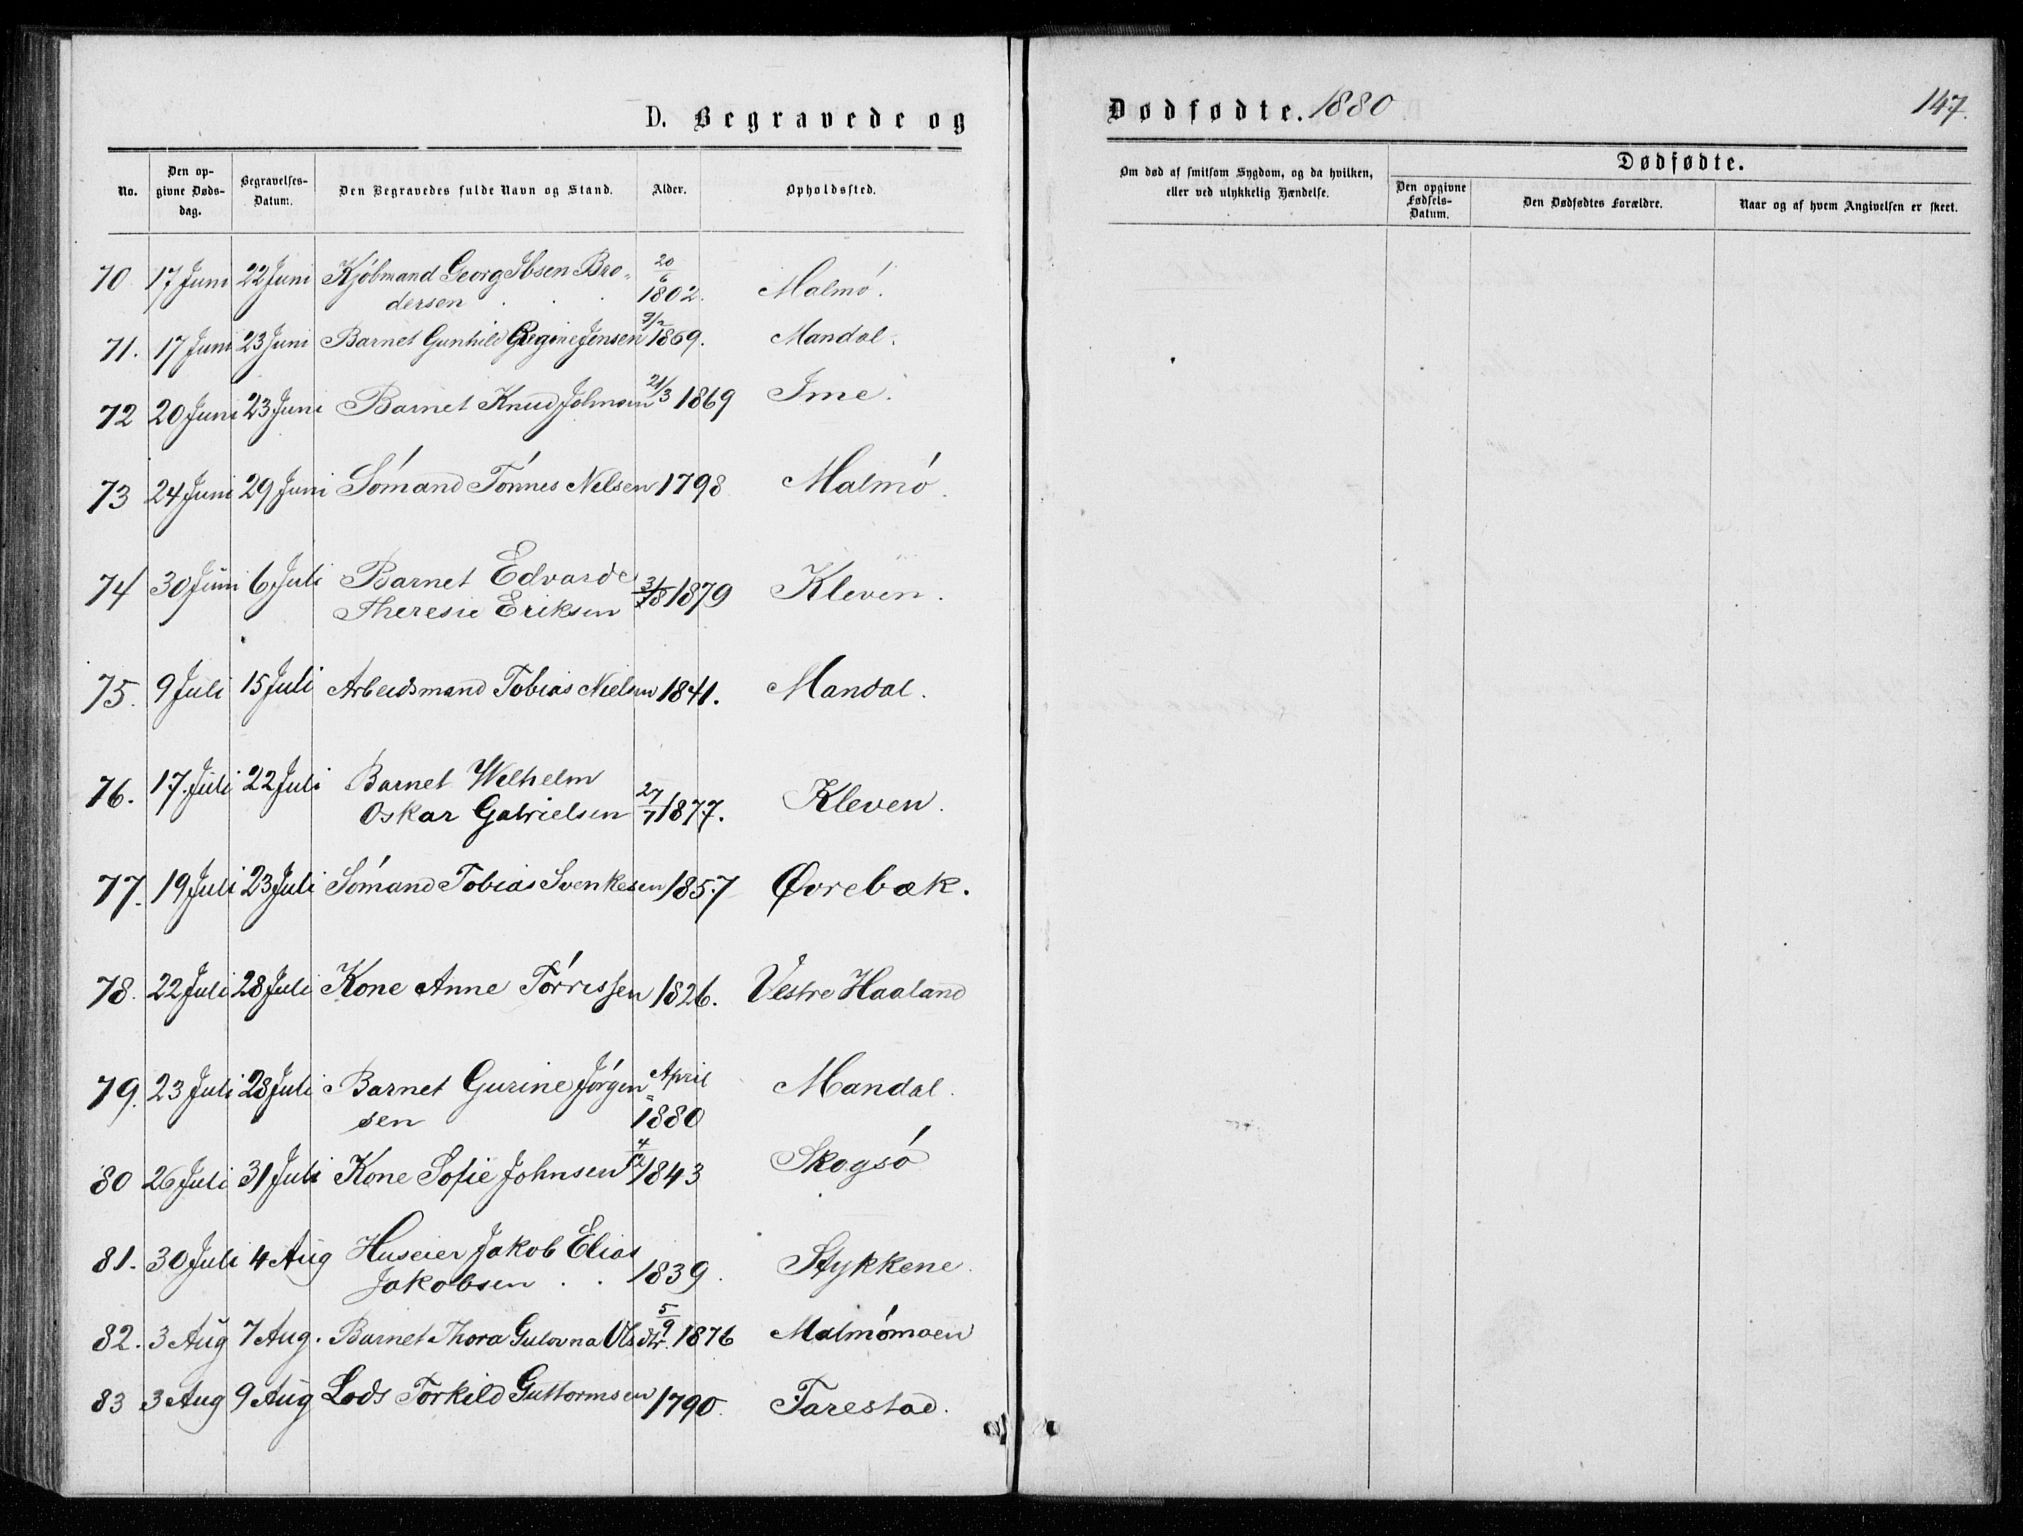 D. Begravede og
Dødfødte. 1880
147.
No.
Den opgivne Dødsdag.
Begravelses-Datum.
Den Begravedes fulde Navn og Stand.
Alder.
Opholdssted.
Om død af smitsom Sygdom, og da hvilken, eller ved ulykkelig Hændelse.
Dødfødte.
Den opgivne Fødsels-Datum.
Den Dødfødtes Forældre.
Naar og af hvem Angivelsen er skeet.
70 17 Juni 22 Juni Kjøbmand Georg Ibsen Brodersen 20/6 1802. Malmø.
71. 17 Juni 23 Juni Barnet Gunhild Regine Jensen 1869. Mandal.
72 20 Juni 23 Juni Barnet Knud Johnsen 21/3 1869 Ime.
73 24 Juni 29 Juni Sømand Tønnes Nelsen 1798 Malmø.
74 30 Juni 6 Juli Barnet Edvarde
Theresie Eriksen 1879 Kleven.
75. 9 Juli 15 Juli Arbeidsmand Tobias Nielsen 1841. Mandal.
76. 17. Juli 22 Juli Barnet Wilhelm
Oskar Gabrielsen 27/7 1877. Kleven.
77. 19 Juli 23 Juli Sømand Tobias Svenkesen 1857 Øvrebæk.
78. 22 Juli 28 Juli Kone Anne Tørrissen 1826. Vestre Haaland
79. 23 Juli 28 Juli Barnet Gurine Jørgensen April 1880 Mandal.
80 26 Juli 31 Juli Kone Sofie Johnsen 4/12 1843 Skogsø
81. 30 Juli 4 Aug Huseier Jakob Elias
Jakobsen . . 1839. Stykkene.
82. 3 Aug 7 Aug. Barnet Thora Gulovna Olsdtr. 5/9 1876 Malmømoen
83 3 Aug 9 Aug Lods Torkild Guttormsen 1790. Tarestad.